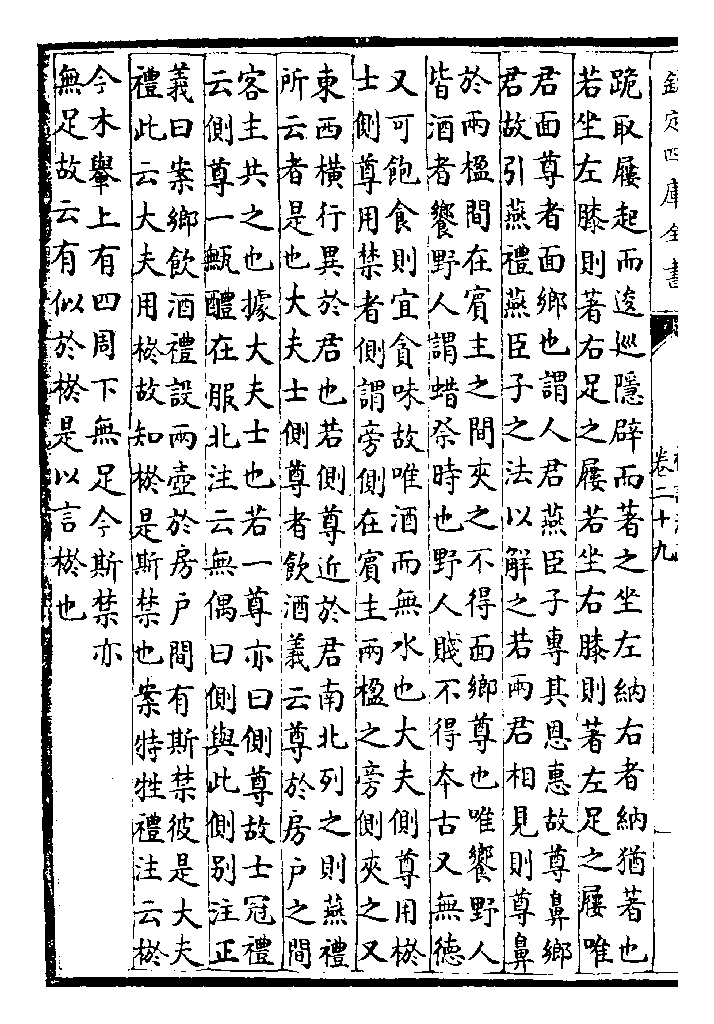 欽定四庫全書
卷二十九
跪取屨起而逡巡隠辟而著之坐左納右者納猶著也
若坐左膝則著右足之屨若坐右膝則著左足之屨唯
君面尊者面鄉也謂人君燕臣子專其恩惠故尊鼻鄉
君故引燕禮燕臣子之法以解之若兩君相見則尊鼻
於兩楹間在賔主之間夾之不得面鄉尊也唯饗野人
皆酒者饗野人謂蜡祭時也野人賤不得本古又無德
又可飽食則宜貪味故唯酒而無水也大夫側尊用棜
士側尊用禁者側謂旁側在賔主兩楹之旁側夾之又
東西横行異於君也若側尊近於君南北列之則燕禮
所云者是也大夫士側尊者飲酒義云尊於房戶之間
客主共之也據大夫士也若一尊亦曰側尊故士冠禮
云側尊一甒醴在服北注云無偶曰側與此側别注正
義曰案鄉飲酒禮設兩壺於房戶間有斯禁彼是大夫
禮此云大夫用棜故知棜是斯禁也案特牲禮注云棜
今木轝上有四周下無足今斯禁亦
無足故云有似於棜是以言棜也